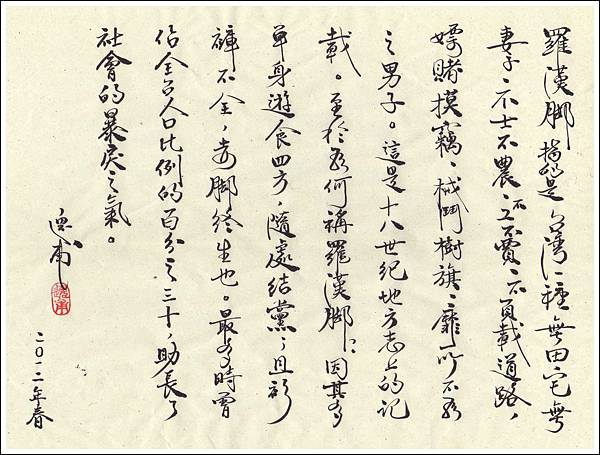 羅漢脚指的是台灣一種無田宅無
妻子、不士不農、不工不賈、不負載道路,
嫖賭摸竊、械鬥樹旗、靡所不為
之男子。這是十八世紀地方志上的記
載。至於為何稱羅漢脚:因其多
單身遊食四方,隨處結黨,且衫
褲不全,赤脚終生也。最多時曾
佔全台人口比例的百分之三十,助長了
社會的暴戾之氣。
二〇一二年春